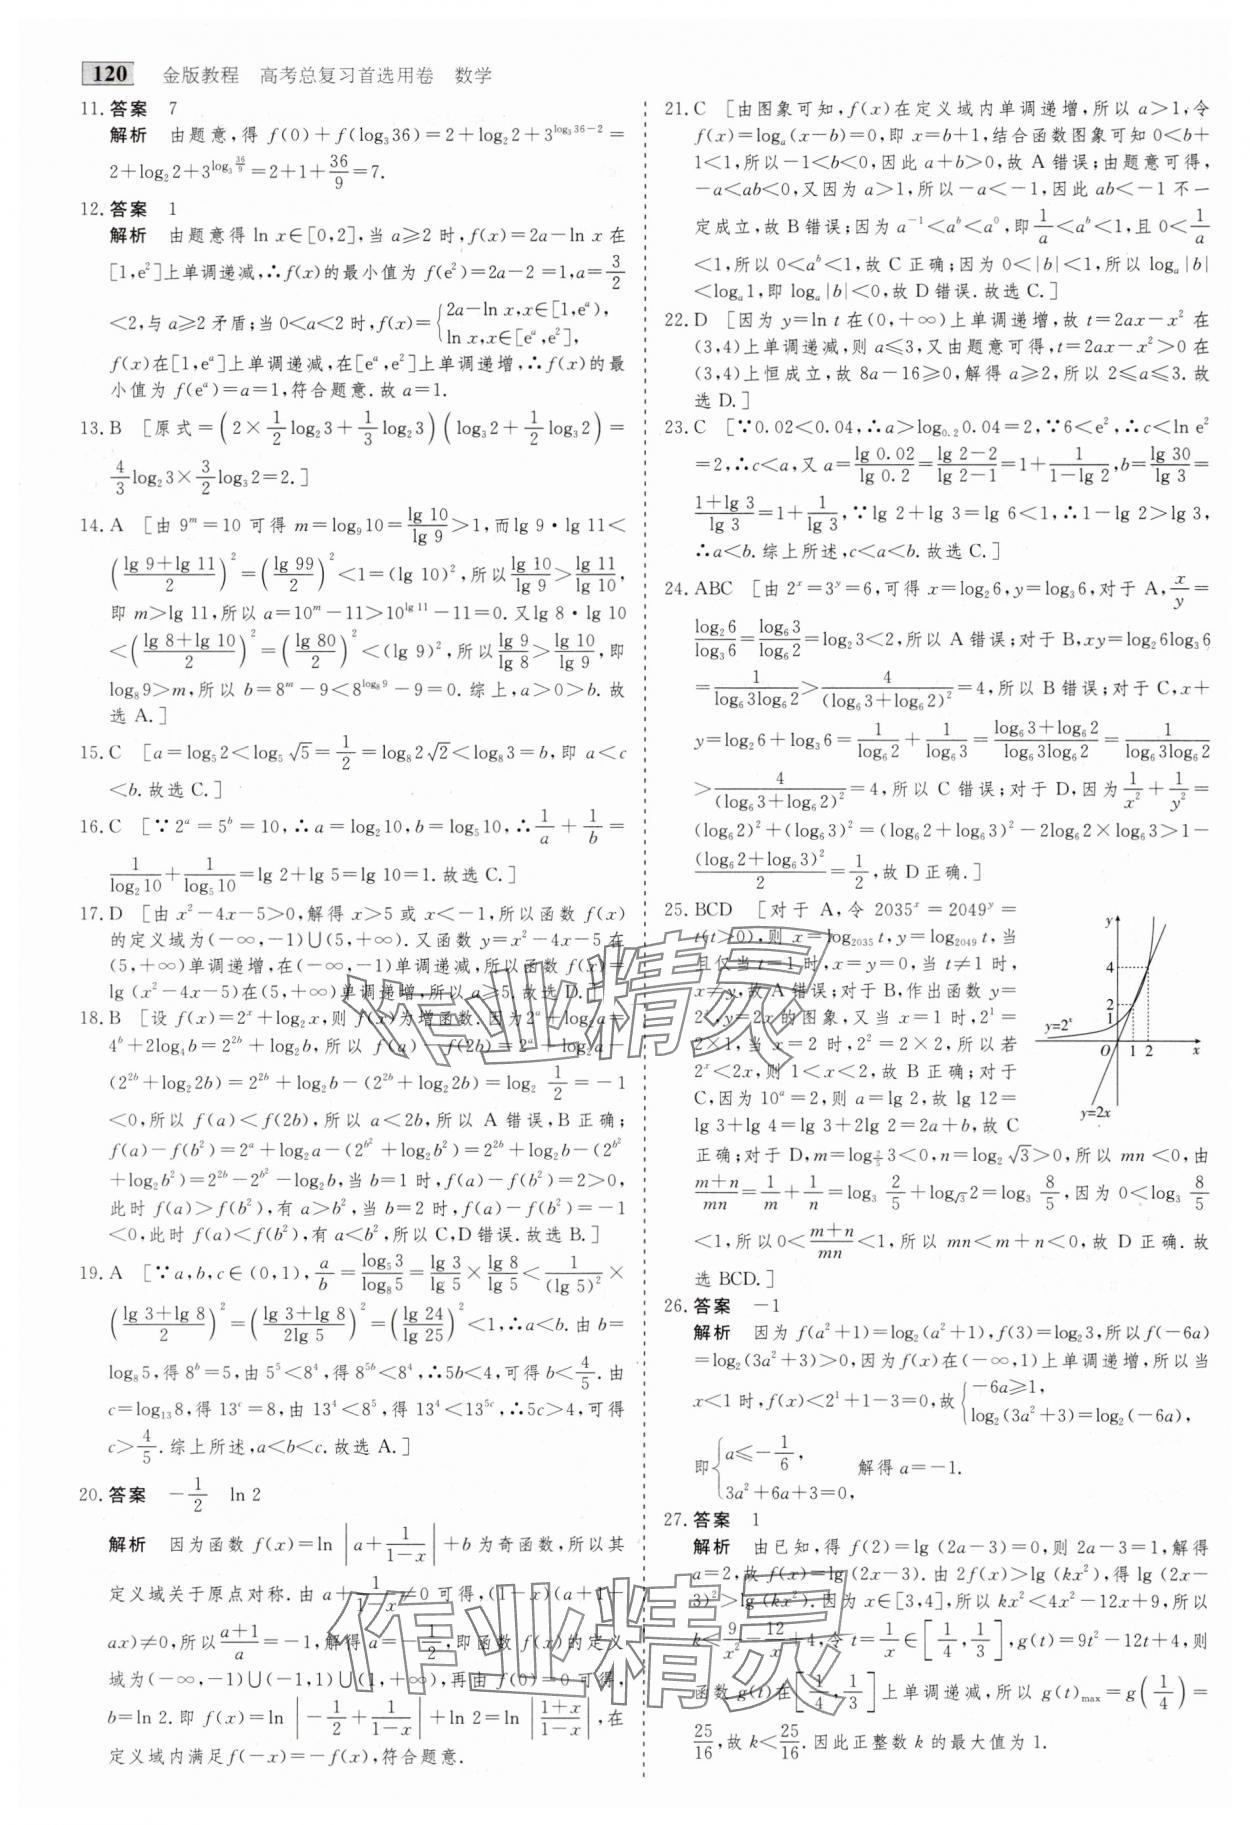 120 金版教程 高考总复习首选用卷 数学
11. 答案 7
解析 由题意,得 f(0)+f(log₃36)=2+log₂2+3^{log₃36-2}=
2+log₂2+3^{log₃(36/9)}=2+1+36/9=7.
12. 答案 1
解析 由题意得 ln x∈[0,2],当 a≥2 时,f(x)=2a-ln x 在
[1,e²]上单调递减,∴f(x)的最小值为 f(e²)=2a-2=1,a=3/2
<2,与 a≥2 矛盾;当 0<a<2 时,f(x)={2a-ln x,x∈[1,eᵃ),
ln x,x∈[eᵃ,e²],
f(x)在[1,eᵃ]上单调递减,在[eᵃ,e²]上单调递增,∴f(x)的最
小值为 f(eᵃ)=a=1,符合题意.故 a=1.
13. B [原式=(2×1/2 log₂3+1/3 log₂3)(log₃2+1/2 log₃2)=
4/3 log₂3×3/2 log₃2=2.]
14. A [由 9ᵐ=10 可得 m=log₉10=lg 10/lg 9>1,而lg 9·lg 11<
((lg 9+lg 11)/2)²=(lg 99/2)²<1=(lg 10)²,所以lg 10/lg 9>lg 11/lg 10,
即 m>lg 11,所以 a=10ᵐ-11>10^{lg 11}-11=0.又lg 8·lg 10
<((lg 8+lg 10)/2)²=(lg 80/2)²<(lg 9)²,所以lg 9/lg 8>lg 10/lg 9,即
log₈9>m,所以 b=8ᵐ-9<8^{log₈9}-9=0.综上,a>0>b.故
选 A.]
15. C [a=log₅2<log₅√5=1/2=log₈2√2<log₈3=b,即 a<c
<b.故选 C.]
16. C [∵2ᵃ=5ᵇ=10,∴a=log₂10,b=log₅10,∴1/a+1/b=
1/log₂10+1/log₅10=lg 2+lg 5=lg 10=1.故选 C.]
17. D [由 x²-4x-5>0,解得 x>5 或 x<-1,所以函数 f(x)
的定义域为(-∞,-1)∪(5,+∞).又函数 y=x²-4x-5 在
(5,+∞)单调递增,在(-∞,-1)单调递减,所以函数 f(x)=
lg (x²-4x-5)在(5,+∞)单调递增,所以 a≥5.故选 D.]
18. B [设 f(x)=2ˣ+log₂x,则 f(x)为增函数.因为2ᵃ+log₂a=
4ᵇ+2log₄b=2^{2b}+log₂b,所以 f(a)-f(2b)=2ᵃ+log₂a-
(2^{2b}+log₂2b)=2^{2b}+log₂b-(2^{2b}+log₂2b)=log₂ 1/2=-1
<0,所以 f(a)<f(2b),所以 a<2b,所以 A 错误,B 正确;
f(a)-f(b²)=2ᵃ+log₂a-(2^{b²}+log₂b²)=2^{2b}+log₂b-(2^{b²}
+log₂b²)=2^{2b}-2^{b²}-log₂b,当 b=1 时,f(a)-f(b²)=2>0,
此时 f(a)>f(b²),有 a>b²,当 b=2 时,f(a)-f(b²)=-1
<0,此时 f(a)<f(b²),有 a<b²,所以 C,D 错误.故选 B.]
19. A [∵a,b,c∈(0,1),a/b=log₅3/log₈5=lg 3/lg 5×lg 8/lg 5<1/(lg 5)²×
((lg 3+lg 8)/2)²=((lg 3+lg 8)/2lg 5)²=(lg 24/lg 25)²<1,∴a<b.由 b=
log₈5,得 8ᵇ=5,由 5⁵<8⁴,得 8^{5b}<8⁴,∴5b<4,可得 b<4/5.由
c=log₁₃8,得 13ᶜ=8,由 13⁴<8⁵,得 13⁴<13^{5c},∴5c>4,可得
c>4/5.综上所述,a<b<c.故选 A.]
20. 答案 -1/2 ln 2
解析 因为函数 f(x)=ln |a+1/(1-x)|+b 为奇函数,所以其
定义域关于原点对称.由 a+1/(1-x)≠0 可得,(1-x)(a+1-
ax)≠0,所以(a+1)/a=-1,解得 a=-1/2,即函数 f(x)的定义
域为(-∞,-1)∪(-1,1)∪(1,+∞),再由 f(0)=0 可得,
b=ln 2.即 f(x)=ln |-1/2+1/(1-x)|+ln 2=ln |(1+x)/(1-x)|,在
定义域内满足f(-x)=-f(x),符合题意.
21. C [由图象可知,f(x)在定义域内单调递增,所以 a>1,令
f(x)=logₐ(x-b)=0,即 x=b+1,结合函数图象可知 0<b+
1<1,所以-1<b<0,因此 a+b>0,故 A 错误;由题意可得,
-a<ab<0,又因为 a>1,所以-a<-1,因此 ab<-1 不一
定成立,故 B 错误;因为 a⁻¹<aᵇ<a⁰,即1/a<aᵇ<1,且 0<1/a
<1,所以 0<aᵇ<1,故 C 正确;因为 0<|b|<1,所以 logₐ|b|
<logₐ1,即 logₐ|b|<0,故 D 错误.故选 C.]
22. D [因为 y=ln t 在(0,+∞)上单调递增,故 t=2ax-x² 在
(3,4)上单调递减,则 a≤3,又由题意可得,t=2ax-x²>0 在
(3,4)上恒成立,故 8a-16≥0,解得 a≥2,所以 2≤a≤3.故
选 D.]
23. C [∵0.02<0.04,∴a>log₀.₂0.04=2,∵6<e²,∴c<ln e²
=2,∴c<a,又 a=lg 0.02/lg 0.2=(lg 2-2)/(lg 2-1)=1+1/(1-lg 2),b=lg 30/lg 3=
(1+lg 3)/lg 3=1+1/lg 3,∵lg 2+lg 3=lg 6<1,∴1-lg 2>lg 3,
∴a<b.综上所述,c<a<b.故选 C.]
24. ABC [由 2ˣ=3ʸ=6,可得 x=log₂6,y=log₃6,对于 A,x/y=
log₂6/log₃6=log₆3/log₆2=log₂3<2,所以 A 错误;对于 B,xy=log₂6log₃6
=1/(log₆3log₆2)>4/(log₆3+log₆2)²=4,所以 B 错误;对于 C,x+
y=log₂6+log₃6=1/log₆2+1/log₆3=(log₆3+log₆2)/(log₆3log₆2)=1/(log₆3log₆2)
>4/(log₆3+log₆2)²=4,所以 C 错误;对于 D,因为1/x²+1/y²=
(log₆2)²+(log₆3)²=(log₆2+log₆3)²-2log₆2×log₆3>1-
(log₆2+log₆3)²/2=1/2,故 D 正确.]
25. BCD [对于 A,令 2035ˣ=2049ʸ=
t(t>0),则 x=log₂₀₃₅t,y=log₂₀₄₉t,当
且仅当 t=1 时,x=y=0,当 t≠1 时,
x≠y,故 A 错误;对于 B,作出函数 y=
2ˣ,y=2x 的图象,又当 x=1 时,2¹=
2×1,当 x=2 时,2²=2×2,所以若
2ˣ<2x,则 1<x<2,故 B 正确;对于
C,因为 10ᵃ=2,则 a=lg 2,故 lg 12=
lg 3+lg 4=lg 3+2lg 2=2a+b,故 C
正确;对于 D,m=log_{2/5}3<0,n=log₂√3>0,所以 mn<0,由
(m+n)/mn=1/m+1/n=log₃ 2/5+log_{√3}2=log₃ 8/5,因为 0<log₃ 8/5
<1,所以0<(m+n)/mn<1,所以 mn<m+n<0,故 D 正确.故
选 BCD.]
y
4
2
1
y=2ˣ
O 1 2 x
y=2x
26. 答案 -1
解析 因为 f(a²+1)=log₂(a²+1),f(3)=log₂3,所以f(-6a)
=log₂(3a²+3)>0,因为f(x)在(-∞,1)上单调递增,所以当
x<1 时,f(x)<2¹+1-3=0,故{-6a≥1,
log₂(3a²+3)=log₂(-6a),
即{a≤-1/6,
3a²+6a+3=0, 解得 a=-1.
27. 答案 1
解析 由已知,得 f(2)=lg (2a-3)=0,则 2a-3=1,解得
a=2,故 f(x)=lg (2x-3).由 2f(x)>lg (kx²),得 lg (2x-
3)²>lg (kx²).因为 x∈[3,4],所以 kx²<4x²-12x+9,所以
k<9/x²-12/x+4,令 t=1/x∈[1/4,1/3],g(t)=9t²-12t+4,则
函数 g(t)在[1/4,1/3]上单调递减,所以 g(t)max=g(1/4)=
25/16,故 k<25/16.因此正整数 k 的最大值为 1.
作业精灵
作业精灵